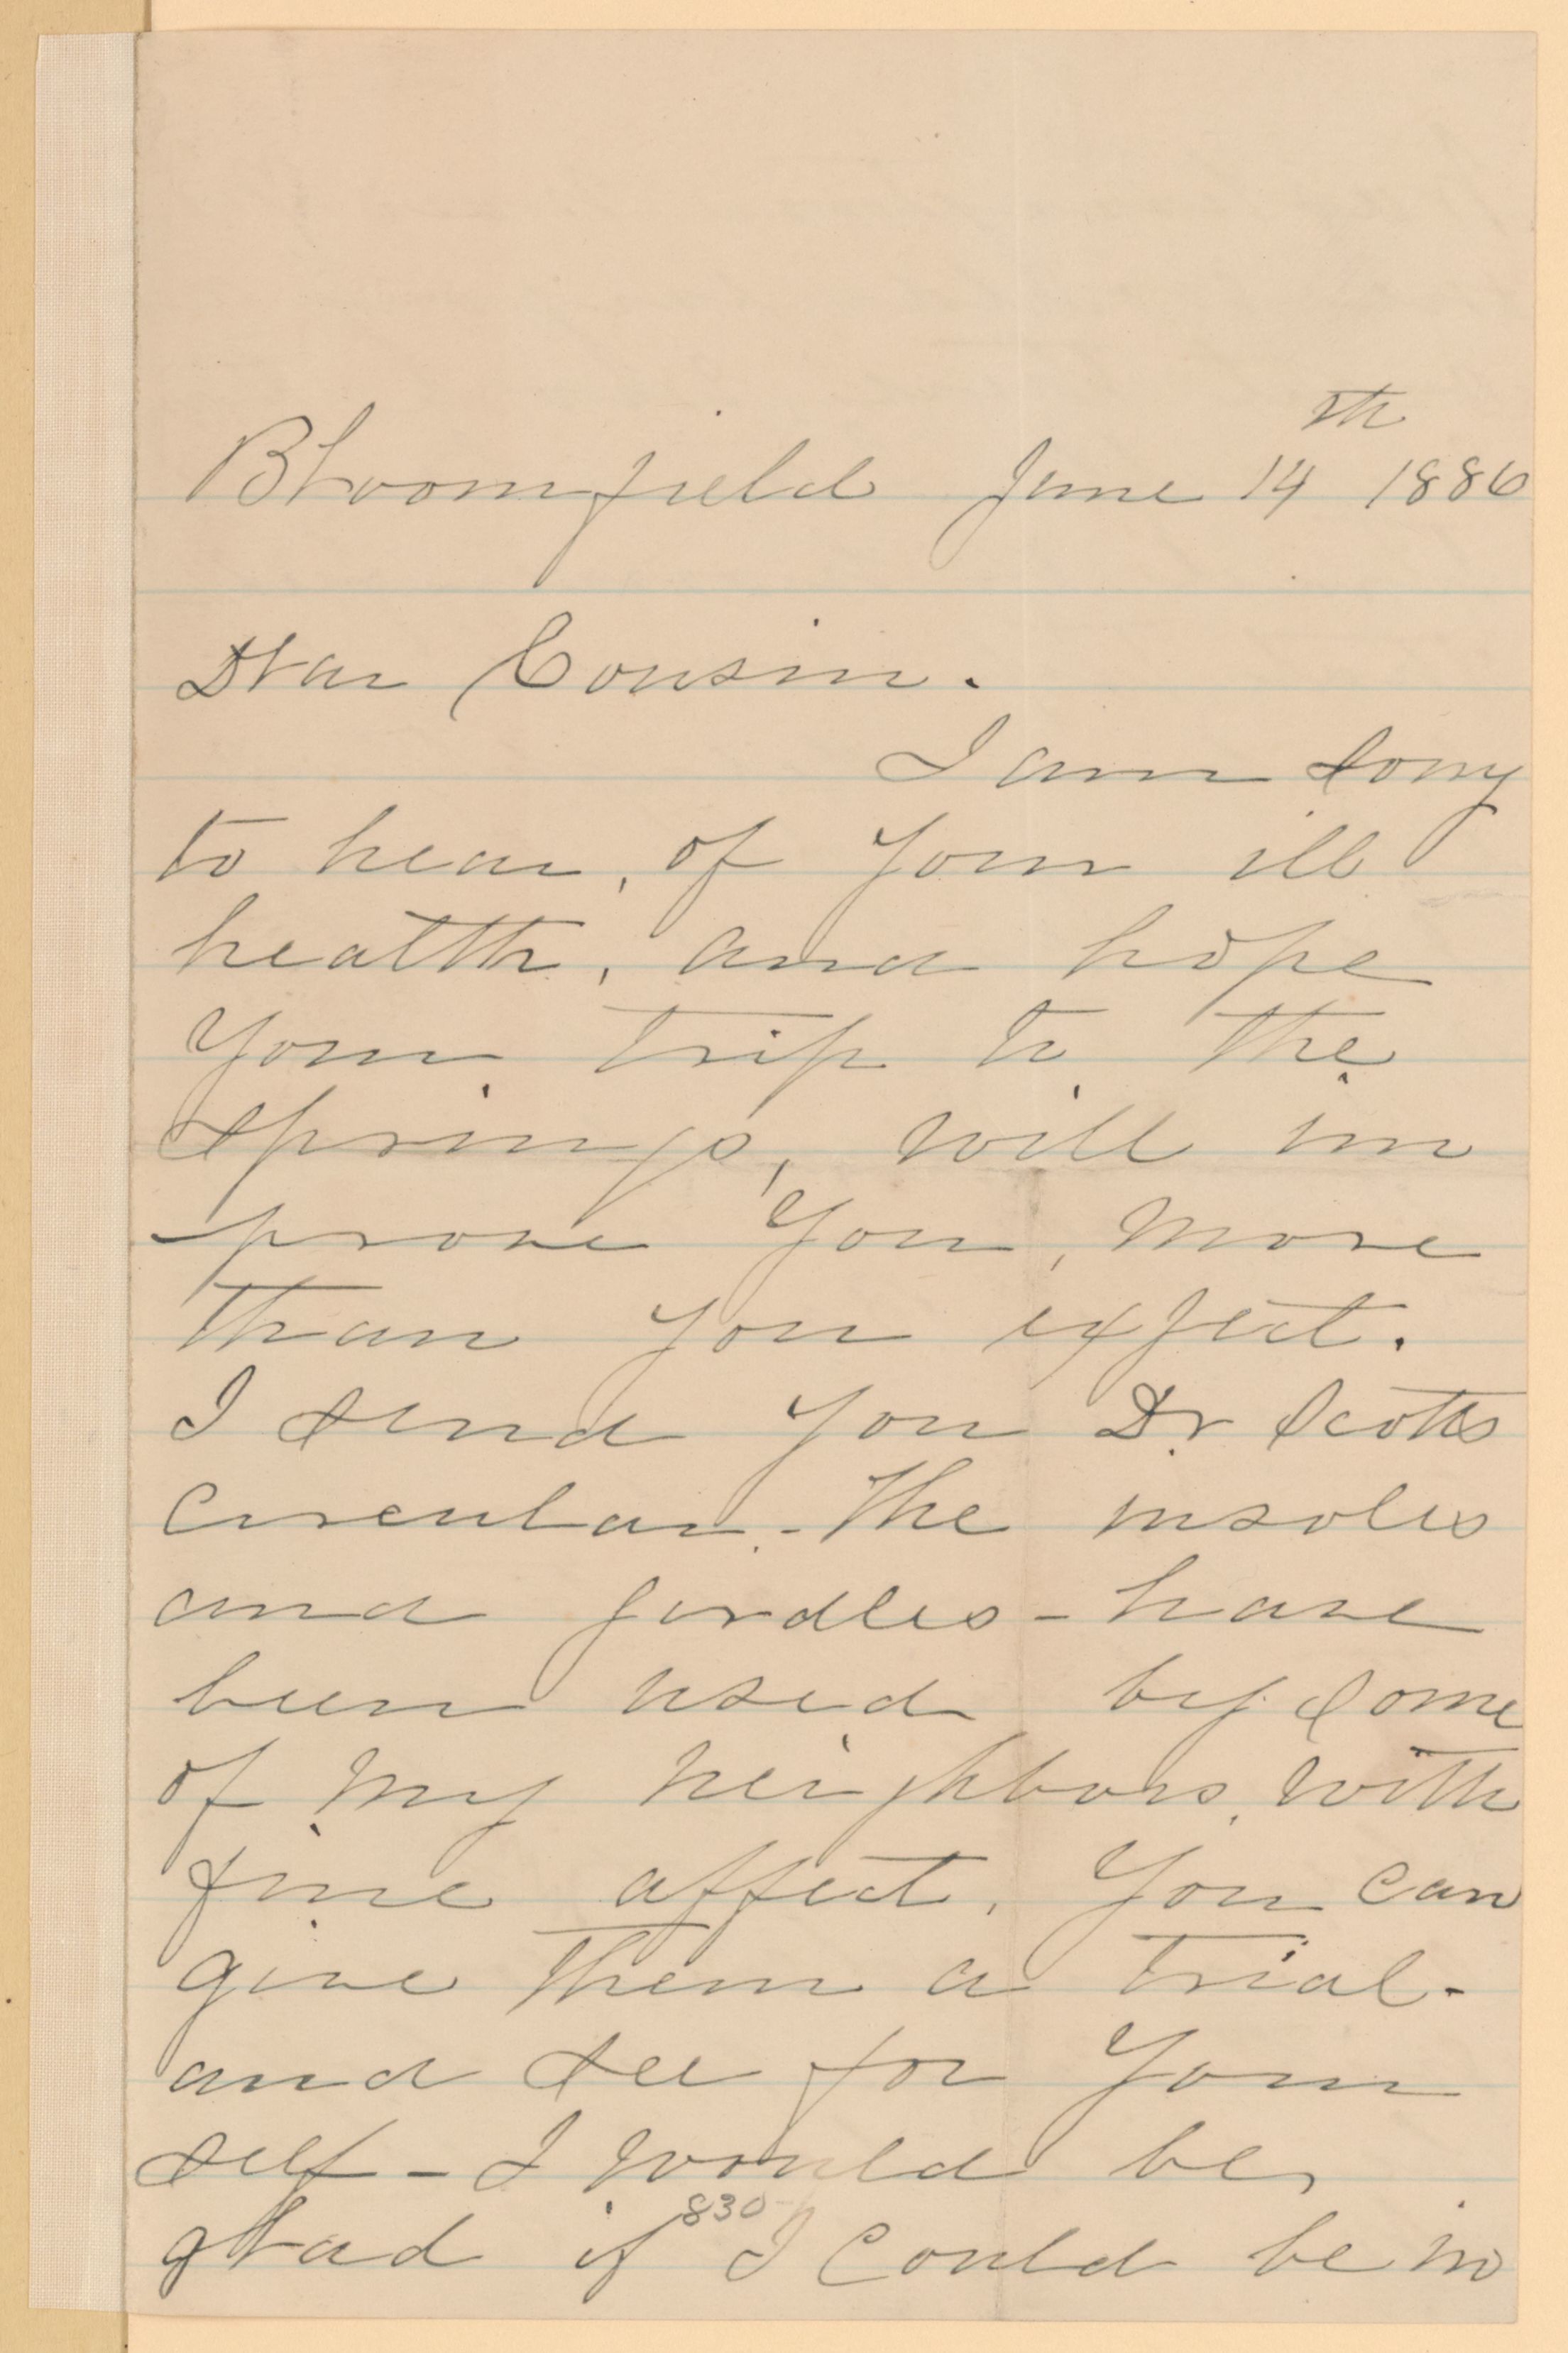 Bloomfield June 14th 1886
Dear Cousin.
I am sorry
to hear, of your ill
health, and hope
your trip to the
springs, will im
prove you, more
than you expect.
I send you Dr Scotts
circular - The insoles
and girdles - have
been used by some
of my neighbors, with
fine affect, You can
give them a trial -
and see for your
self - I would be,
830
glad if I could be in